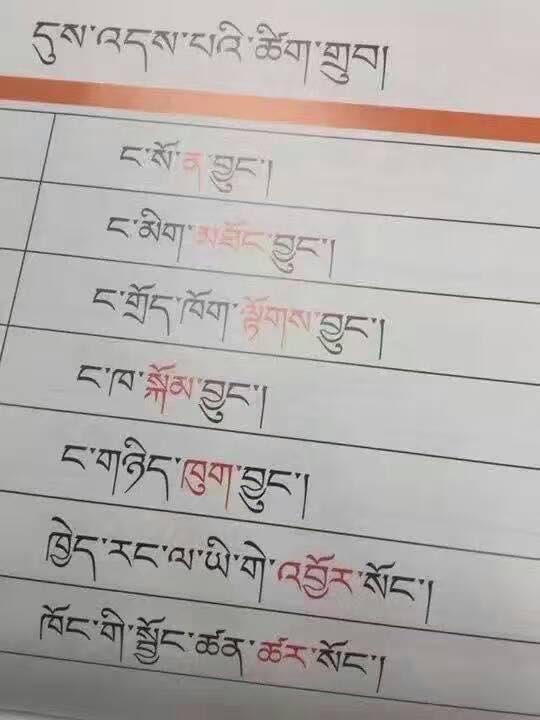 དུས་འདས་པའི་ཚིག་གྲུབ།
ང་སོ་ན་བྱུང་།
ང་མིག་མཐོང་བྱུང་།
ང་གྲོད་ཁོག་ལྟོགས་བྱུང་།
ང་ཁ་སྐོམ་བྱུང་།
ང་གཉིད་ཁུག་བྱུང་།
ཁྱེད་རང་ལ་ཡི་གེ་འབྱོར་སོང་།
ཁོང་གི་སློང་ཚན་ཚར་སོང་།